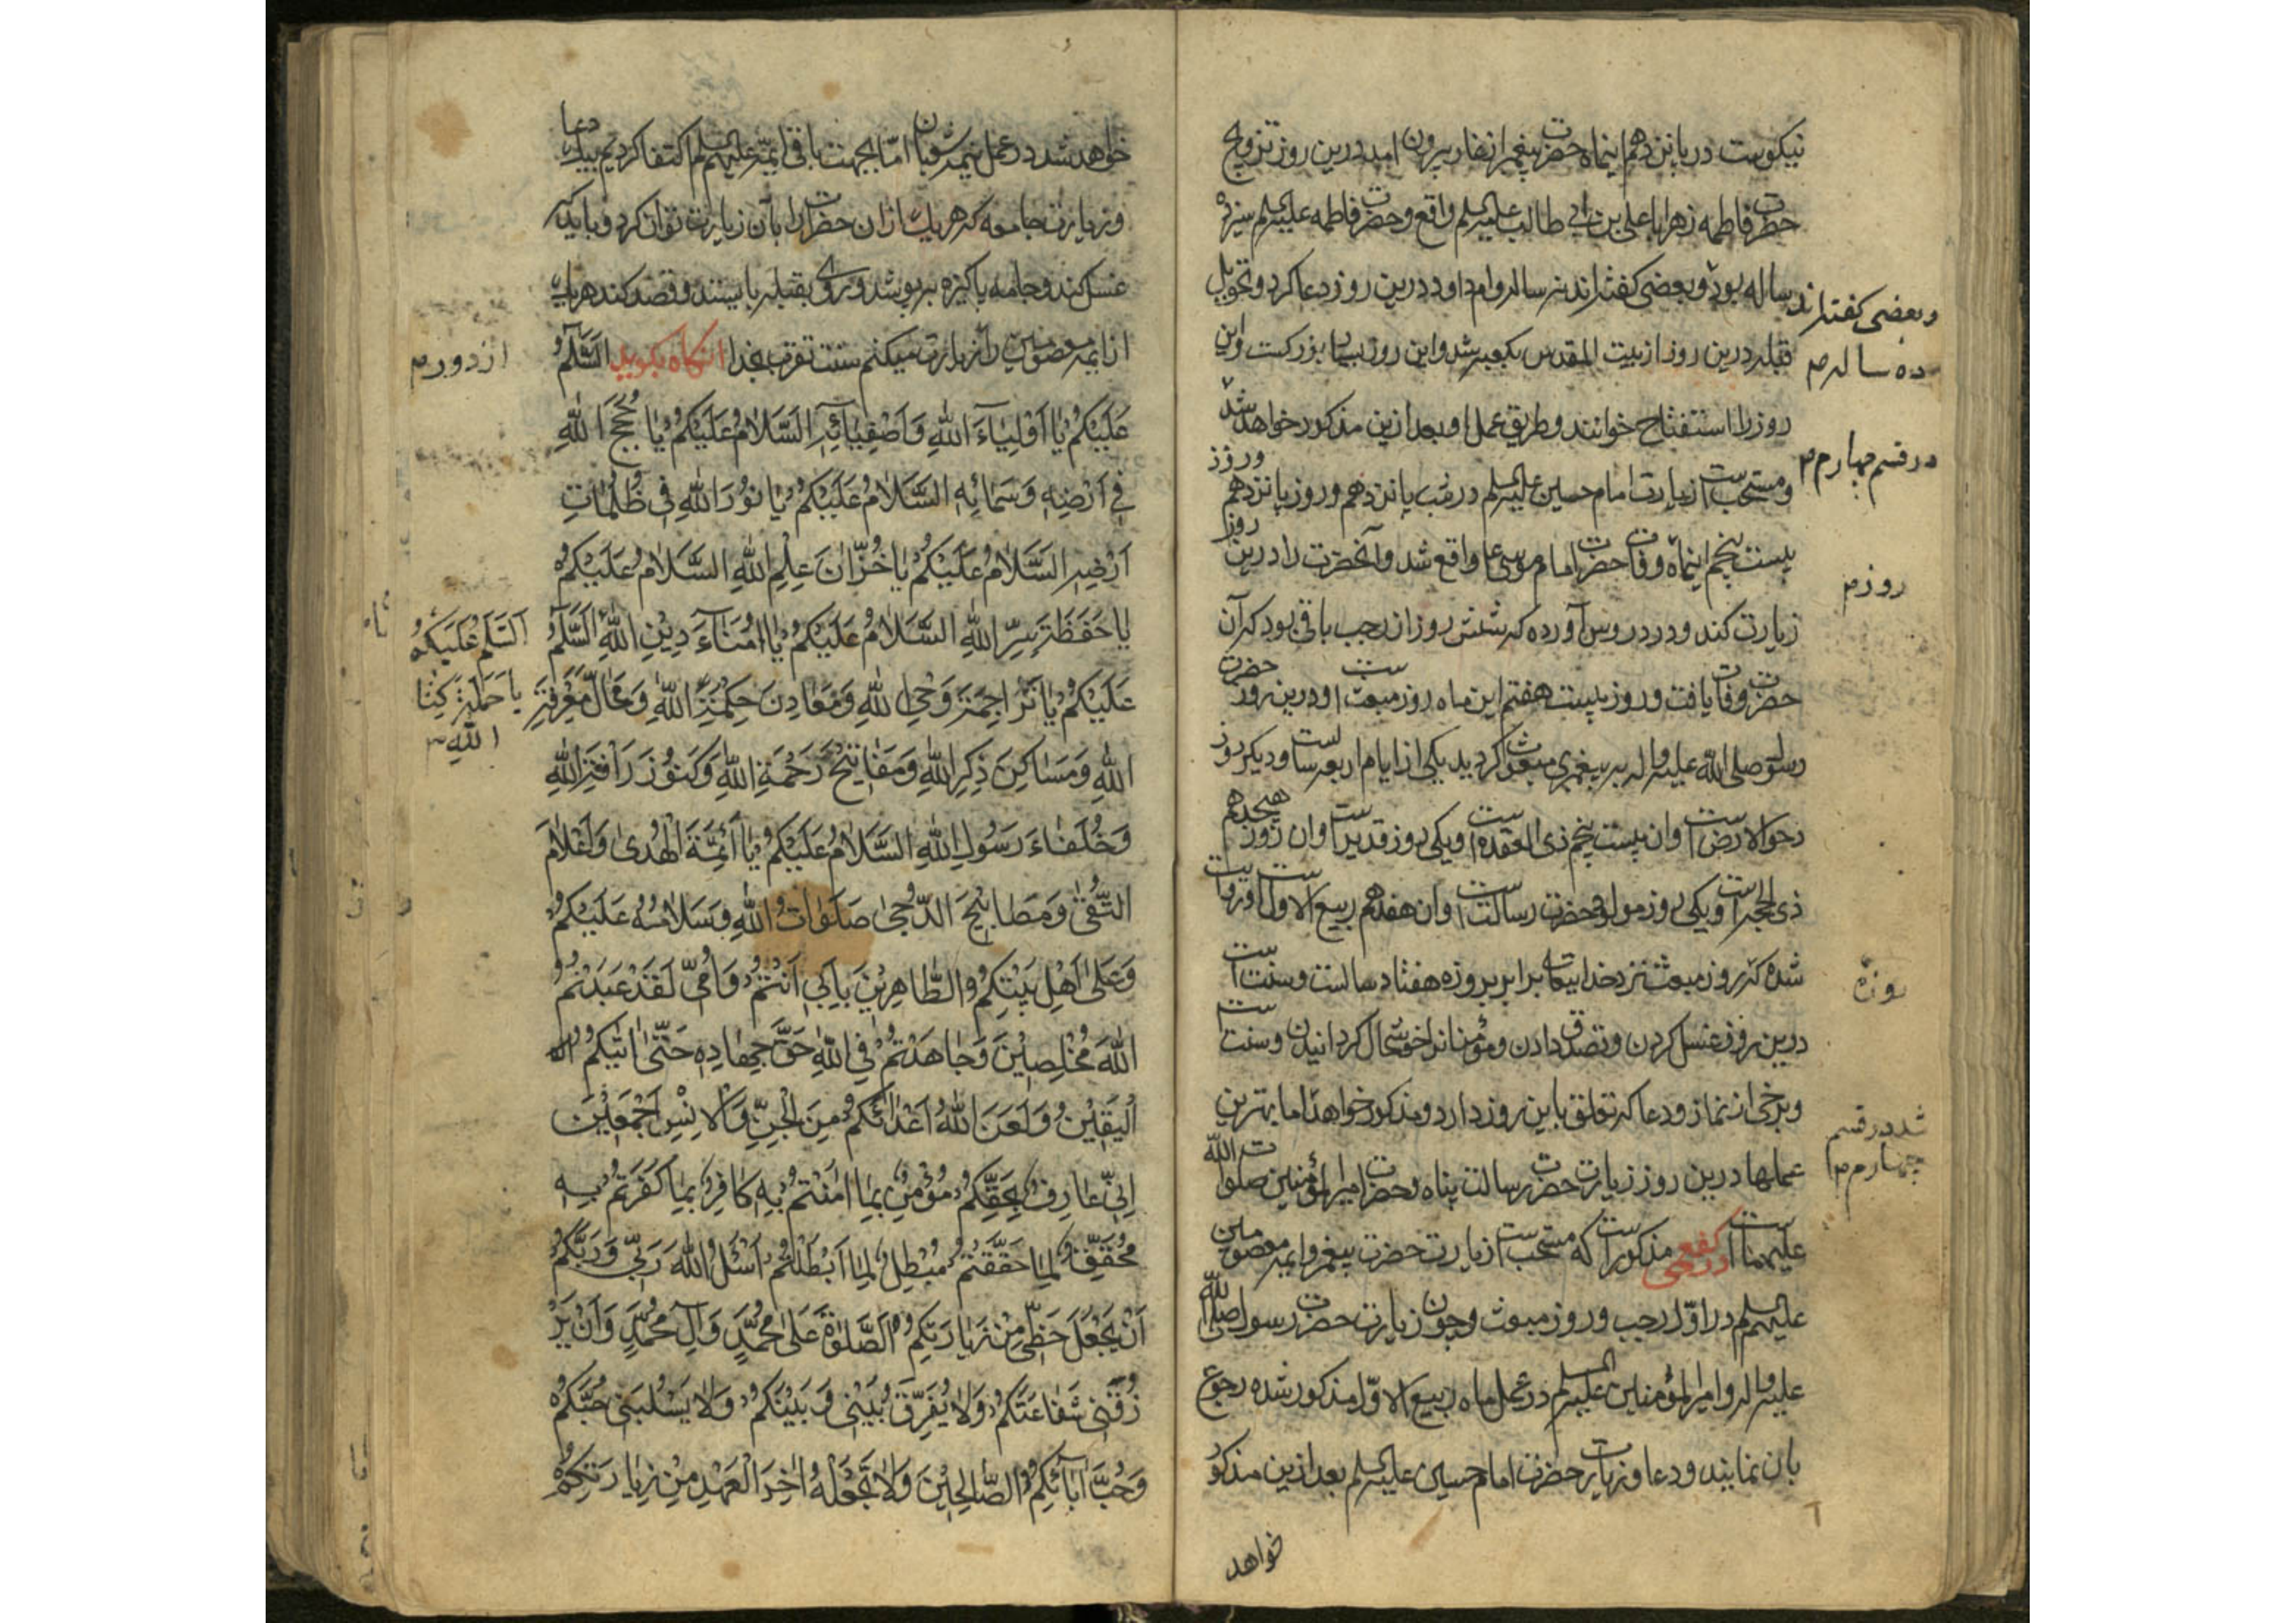 نیکوست در پانزدهم اینماه حضرت پیغمبر از غار بیرون آمد درین روز تزویج
حضرت فاطمه زهرا با علی بن ابی طالب علیه السلم واقع و حضرت فاطمه علیها السلم سیزده
ساله بود و بعضی گفته‌اند نه ساله و ام داود درین روز دعا کرد و تحویل
وبعضی گفته‌اند
ده ساله م
قبله درین روز از بیت المقدس بکعبه شد و این روز بسیار بزرکست و این
روز را استفتاح خوانند و طریق عمل او بعد ازین مذکور خواهد شد
در قسم چهارم م
و مستحب است زیارت امام حسین علیه السلم در شب پانزدهم و روز پانزدهم و روز
بیست پنجم اینماه وفات حضرت امام موسی ع واقع شد و آنحضرت را درین روز
روز م
زیارت کند و در دروس آورده که شش روز از رجب باقی بود که آن
حضرت وفات یافت و روز بیست هفتم این ماه روز مبعث است و درین روز حضرت
رسول صلی الله علیه واله به پیغمبری مبعوث کردید یکی از ایام اربعه است و دیکر روز
دحو الارض است وان بیست پنجم ذی القعده است و یکی روز غدیر است وان روز هیجدهم
ذی الحجه است و یکی روز مولود حضرت رسالت است وان هفدهم ربیع الاول است و روایت
شده که روز مبعث نزد خدایتعالی برابر بروزه هفتاد سالست و سنت است
روزه
درین روز غسل کردن و تصدق دادن و مؤمنانرا خوشحال کردانیدن و سنت است
و برخی از نماز و دعا که تعلق باین روز دارد و مذکور خواهد اما بهترین
شد در قسم
چهارم م
عملها درین روز زیارت حضرت رسالت پناه و حضرت امیر المؤمنین صلوات الله
علیهما است کفعمی مذکور است که مستحب است زیارت حضرت پیغمبر و ایمه معصومین
علیهم السلم در اول رجب و روز مبعوث و چون زیارت حضرت رسول صلی الله
علیه واله و امیر المؤمنین علیه السلم در عمل ماه ربیع الاول مذکور شده رجوع
بان نمایند و دعا و زیارت حضرت امام حسین علیه السلم بعد ازین مذکور
خواهد
خواهد شد در عمل نیمه شعبان اما بجهت باقی ایمه علیهم السلم اکتفا کردیم بیک دعا
و زیارت جامعه که هر یک از ان حضرات را بآن زیارت توان کرد و باید که
غسل کند و جامه پاکیزه بپوشد و روی بقبله بایستد و قصد کند هر یک
از ایمه معصومین را زیارت میکنم سنت تقرب بخدا انکاه بکوید السَّلَمُ
از دور م
عَلَیْکُمْ یٰا اَوْلِیٰاءَ اللّٰهِ وَاَصْفِیٰائِهِ السَّلاٰمُ عَلَیْکُمْ یٰا حُجَجَ اللّٰهِ
فِی اَرْضِهِ وَسَمٰائِهِ السَّلاٰمُ عَلَیْکُمْ یٰا نُورَ اللّٰهِ فِی ظُلُمٰاتِ
اَرْضِهِ السَّلاٰمُ عَلَیْکُمْ یٰا خُزّٰانَ عِلْمِ اللّٰهِ السَّلاٰمُ عَلَیْکُمْ
یٰا حَفَظَةَ سِرِّ اللّٰهِ السَّلاٰمُ عَلَیْکُمْ یٰا اُمَنٰاءَ دِیْنِ اللّٰهِ السَّلَمُ
اَلسَّلَمُ عَلَیْکُمْ
یا حَمَلَةَ کِتٰا
اللّٰهِ
عَلَیْکُمْ یٰا تَرٰاجِمَةَ وَحْیِ اللّٰهِ وَمَعٰادِنَ حِکْمَةِ اللّٰهِ وَمَحٰالَّ مَعْرِفَةِ
اللّٰهِ وَمَسٰاکِنَ ذِکْرِ اللّٰهِ وَمَفٰاتِیْحَ رَحْمَةِ اللّٰهِ وَکُنُوْزَ رَأْفَةِ اللّٰهِ
وَخُلَفٰاءَ رَسُولِ اللّٰهِ السَّلاٰمُ عَلَیْکُمْ یٰا اَئِمَّةَ الْهُدیٰ وَاَعْلاٰمَ
التُّقیٰ وَمَصٰابِیْحَ الدُّجیٰ صَلَوٰاتُ اللّٰهِ وَسَلاٰمُهُ عَلَیْکُمْ
وَعَلیٰ اَهْلِ بَیْتِکُمْ الطّٰاهِرِیْنَ بِاَبِی اَنْتُمْ وَاُمِّی لَقَدْ عَبَدْتُمْ
اللّٰهَ مُخْلِصِیْنَ وَجٰاهَدْتُمْ فِی اللّٰهِ حَقَّ جِهٰادِهِ حَتّٰی اَتٰیکُمْ
الْیَقِیْنُ وَلَعَنَ اللّٰهُ اَعْدٰائَکُمْ مِنَ الْجِنِّ وَالْاِنْسِ اَجْمَعِیْنَ
اِنِّی عٰارِفٌ بِحَقِّکُمْ مُؤْمِنٌ بِمٰا اٰمَنْتُمْ بِهِ کٰافِرٌ بِمٰا کَفَرْتُمْ بِهِ
مُحَقِّقٌ لِمٰا حَقَّقْتُمْ مُبْطِلٌ لِمٰا اَبْطَلْتُمْ اَسْئَلُ اللّٰهَ رَبِّی وَرَبَّکُمْ
اَنْ یَجْعَلَ حَظِّی مِنْ زِیٰارَتِکُمْ الصَّلٰوةَ عَلیٰ مُحَمَّدٍ وَاٰلِ مُحَمَّدٍ وَاَنْ یَرْ
زُقَنِی شَفٰاعَتَکُمْ وَلاٰ یُفَرِّقَ بَیْنِی وَبَیْنَکُمْ وَلاٰ یَسْلُبَنِی حُبَّکُمْ
وَحُبَّ اٰبٰائِکُمُ الصّٰالِحِیْنَ وَلاٰ تَجْعَلْهُ اٰخِرَ الْعَهْدِ مِنْ زِیٰارَتِکُمْ